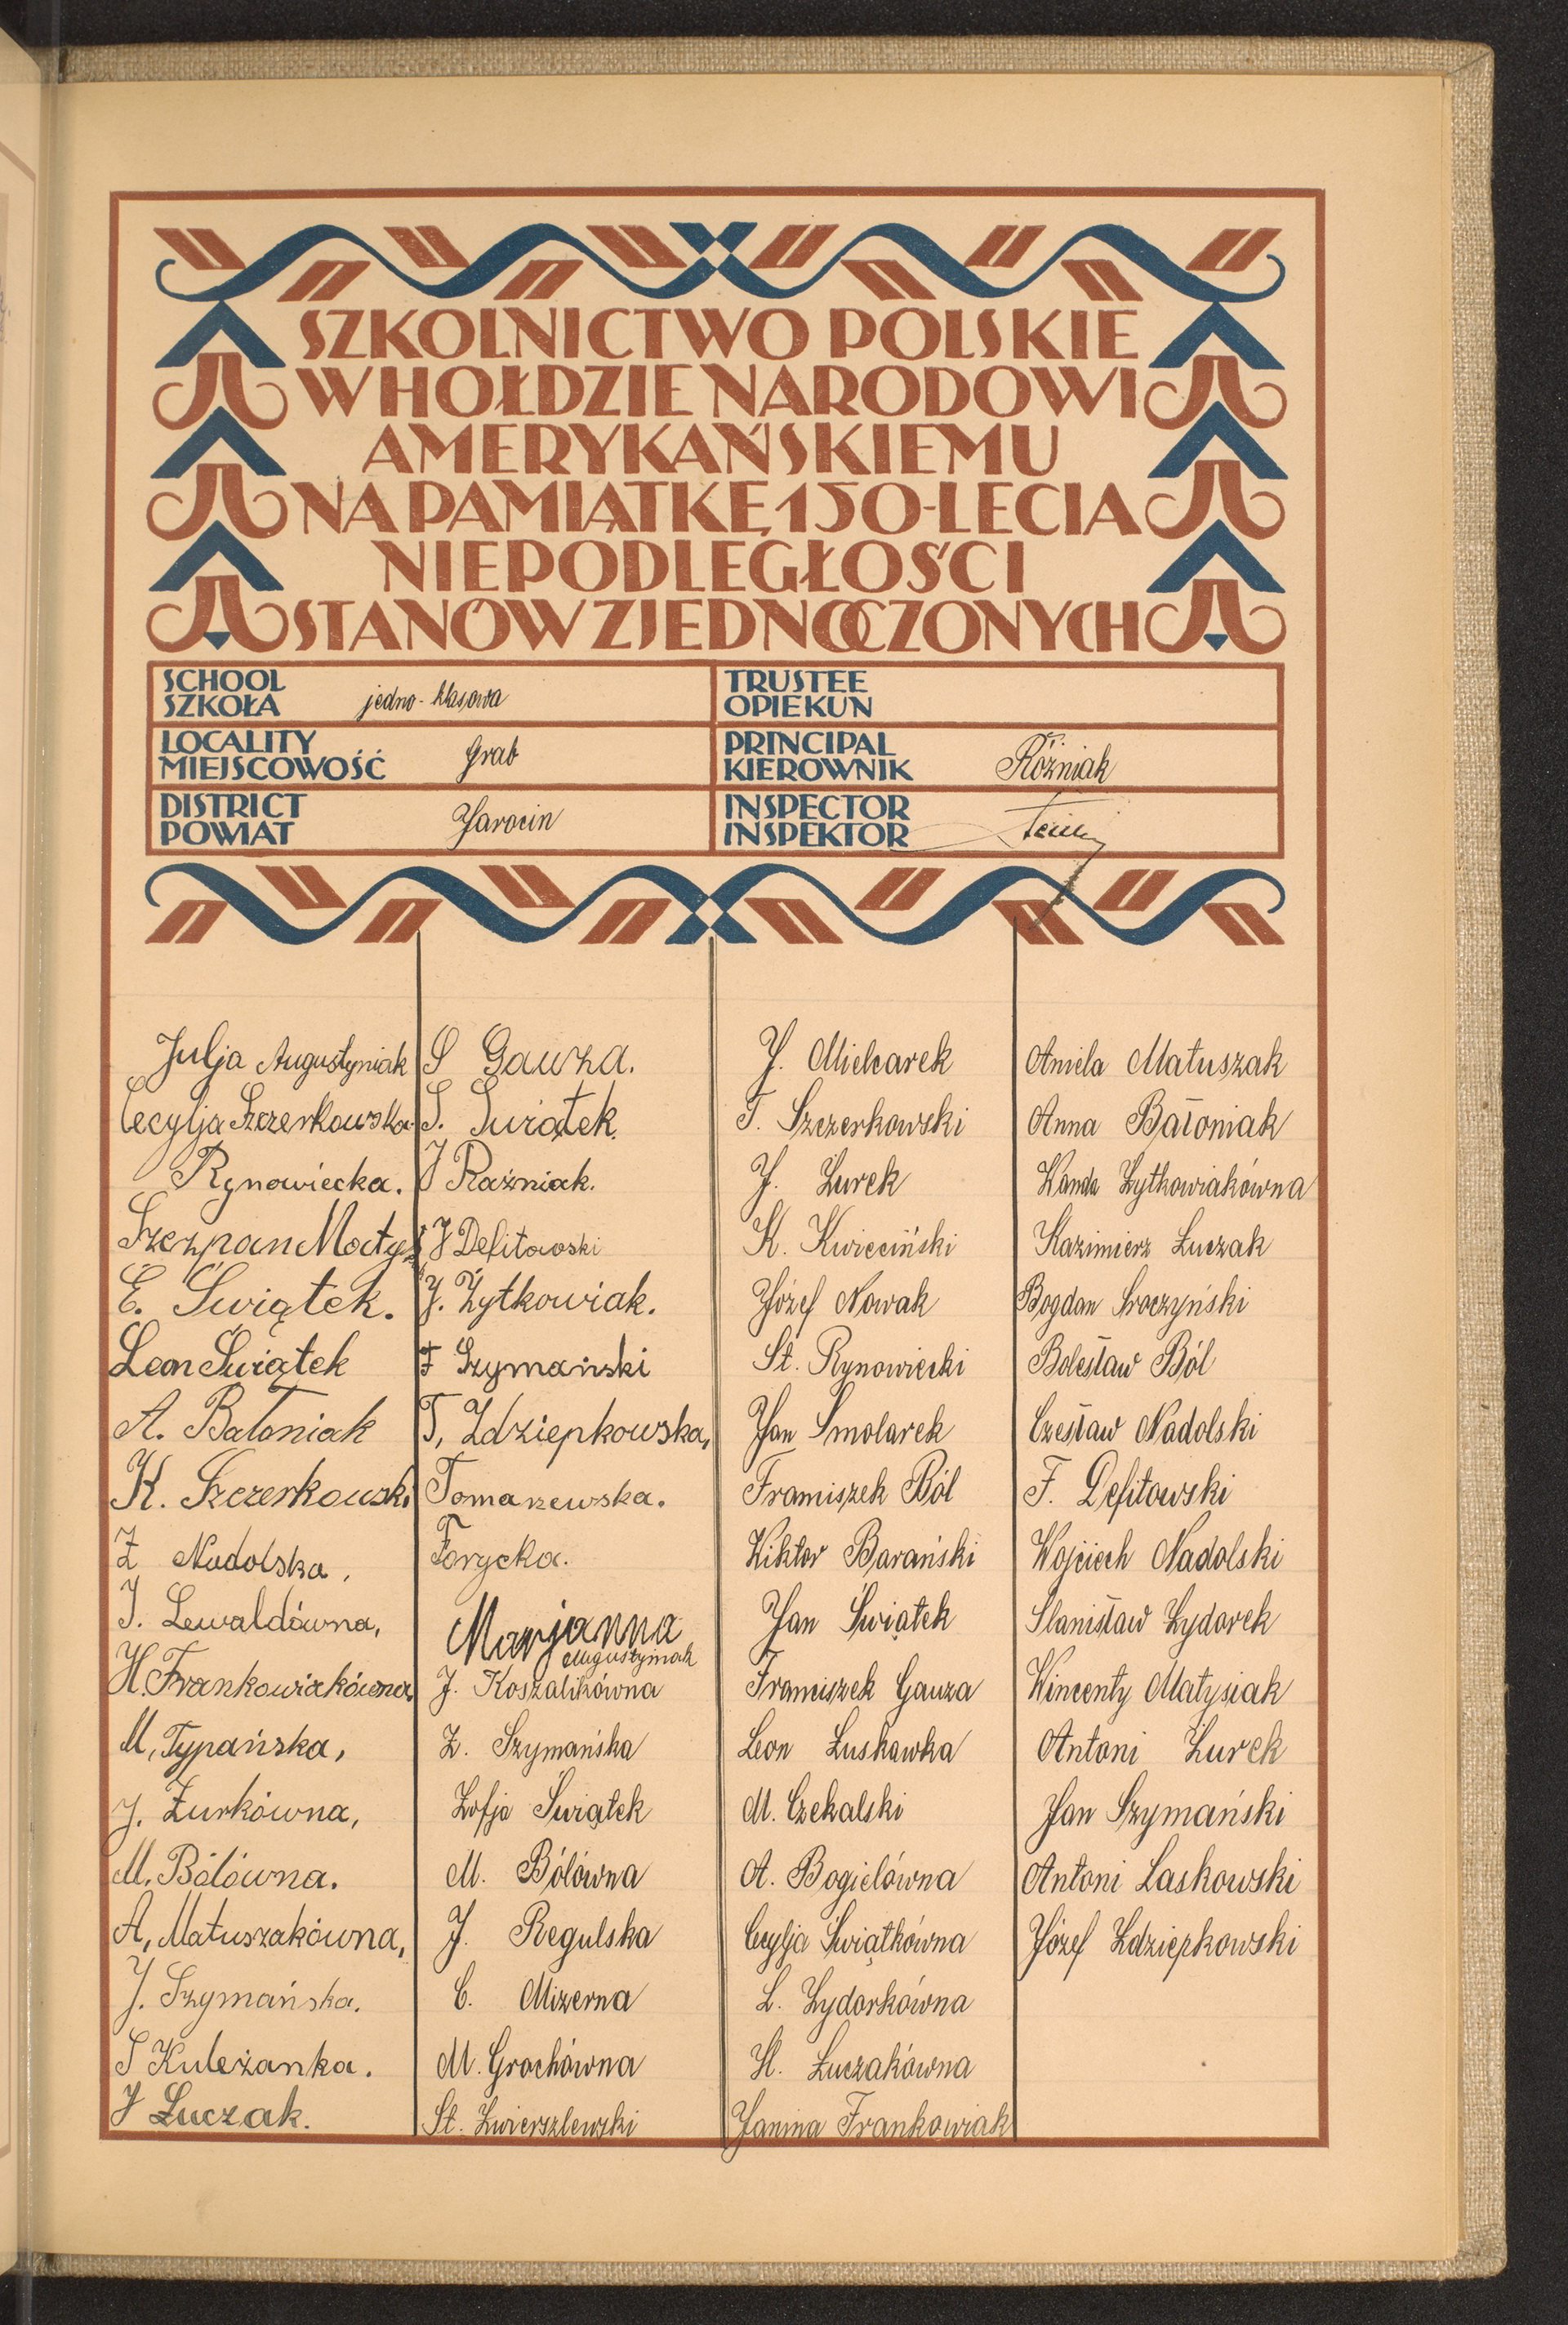 SZKOLNICTWO POLSKIE
W HOŁDZIE NARODOWI
AMERYKAŃSKIEMU
NA PAMIĄTKĘ 150-LECIA
NIEPODLEGŁOŚCI
STANÓW ZJEDNOCZONYCH
SCHOOL
SZKOŁA
jedno-klasowa
TRUSTEE
OPIEKUN
LOCALITY
MIEJSCOWOŚĆ
Grab
PRINCIPAL
KIEROWNIK
Różniak
DISTRICT
POWIAT
Jarocin
INSPECTOR
INSPEKTOR
Julja Augustyniak
Cecylja Szczerkowska.
Rynowiecka.
Szczpan Matys
E. Świątek.
Leon Świątek
A. Batoniak
K. Szczerkowski
Z Nadolska,
J. Lewaldówna,
H. Frankowiakówna,
M, Typańska,
J. Żurkówna,
M, Bólówna.
A, Matuszakówna,
J. Szymańska.
S Kuleżanka.
J Łuczak.
S Gauza.
S. Świątek.
J Raźniak.
J Defitowski
J. Żytkowiak.
F Szymański
T, Zdziepkowska,
Tomaszewska.
Forycka.
Marjanna
Augustyniak
J. Koszalikówna
Z. Szymańska
Zofja Świątek
M. Bólówna
J. Regulska
C. Mizerna
M. Grochówna
St. Zwierszlewski
J. Mielcarek
T. Szczerkowski
J. Żurek
K. Kwieciński
Józef Nowak
St. Rynowiecki
Jan Smolarek
Franciszek Ból
Wiktor Barański
Jan Świątek
Franciszek Gauza
Leon Łuskawka
M. Czekalski
A. Bogielówna
Cecylja Świątkówna
L. Zydorkówna
H. Łuczakówna
Janina Frankowiak
Aniela Matuszak
Anna Bałoniak
Wanda Żytkowiakówna
Kazimierz Łuczak
Bogdan Sroczyński
Bolesław Ból
Czesław Nadolski
F. Defitowski
Wojciech Nadolski
Stanisław Zydorek
Wincenty Matysiak
Antoni Żurek
Jan Szymański
Antoni Laskowski
Józef Zdziepkowski